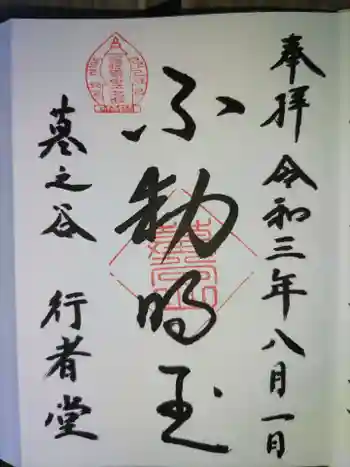 奉拝 令和三年八月一日
不動明王
墓之谷 行者堂